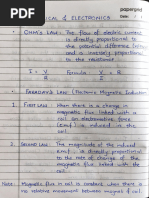 papergrid
Date: / /
ELECTRICAL & ELECTRONICS
* OHM'S LAW: The flow of electric current
is directly proportional to
the potential difference
and is inversely proportional
to the resistance.
I = V/R Formula V = R
* FARADAY'S LAW (Electronic Magnetic Induction
1. FIRST LAW When there is a change in
magnetic flux linked with a
coil an Electromotive force
(E.m.f) is induced in the
coil.
2. SECOND LAW The magnitude of the induced
(E.m.f) is directly proportional
to the rate of change of the
magnetic flux linked with a
coil.
Note: Magnetic flux in coil is constant when there is
no relative movement between magnet of coil.